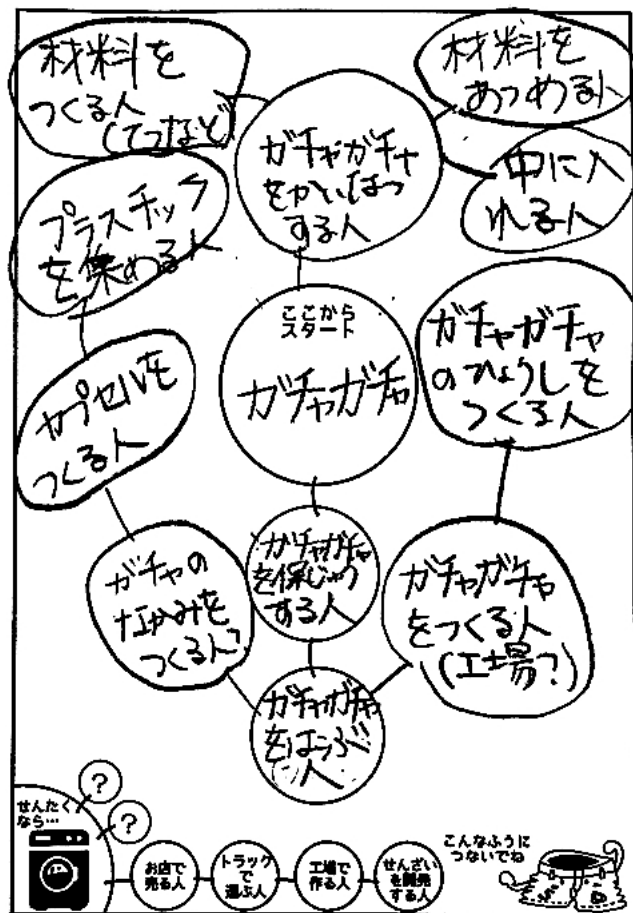 材料を
つくる人
(てつなど)
材料を
あつめる人
ガチャガチャ
をかいはつ
する人
中に入
れる人
プラスチック
を集める人
ここから
スタート
ガチャガチャ
ガチャガチャ
のひょうしを
つくる人
カプセルを
つくる人
ガチャの
なかみを
つくる人?
ガチャガチャ
を保じゅう
する人
ガチャガチャ
をつくる人
(工場?)
ガチャガチャ
をはこぶ
人
せんたく
なら…
?
?
お店で
売る人
トラック
で
運ぶ人
工場で
作る人
せんざい
を開発
する人
こんなふうに
つないでね